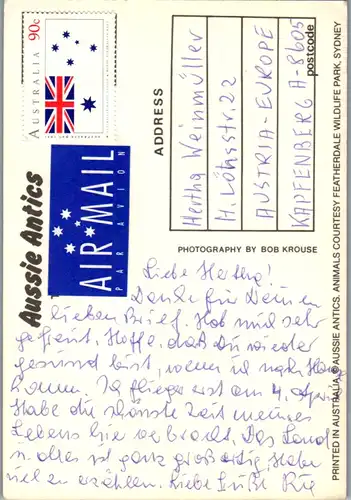 90c
AUSTRALIA
Aussie Antics
AIR MAIL
PAR AVION
ADDRESS
Hertha Weinmüller
H. Lönsstr. 22
AUSTRIA-EUROPE
KAPFENBERG A-8605
postcode
PHOTOGRAPHY BY BOB KROUSE
PRINTED IN AUSTRALIA. © AUSSIE ANTICS. ANIMALS COURTESY FEATHERDALE WILDLIFE PARK, SYDNEY
Liebe Hertha!
Danke für Deinen
lieben Brief. Hab mich sehr
gefreut. Hoffe, daß Du wieder
gesund bist, wenn ich nach Hause
komm. Ich fliege erst am 4. April
Habe die schönste Zeit meines
Lebens hier verbracht. Das Land
u. alles ist ganz großartig. Habe
viel zu erzählen. Liebe Grüße